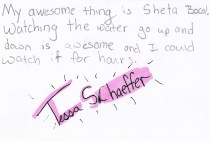 My awesome thing is Sheta Boca.
Watching the water go up and
down is awesome and I could
watch it for hours.
Tessa Schaeffer